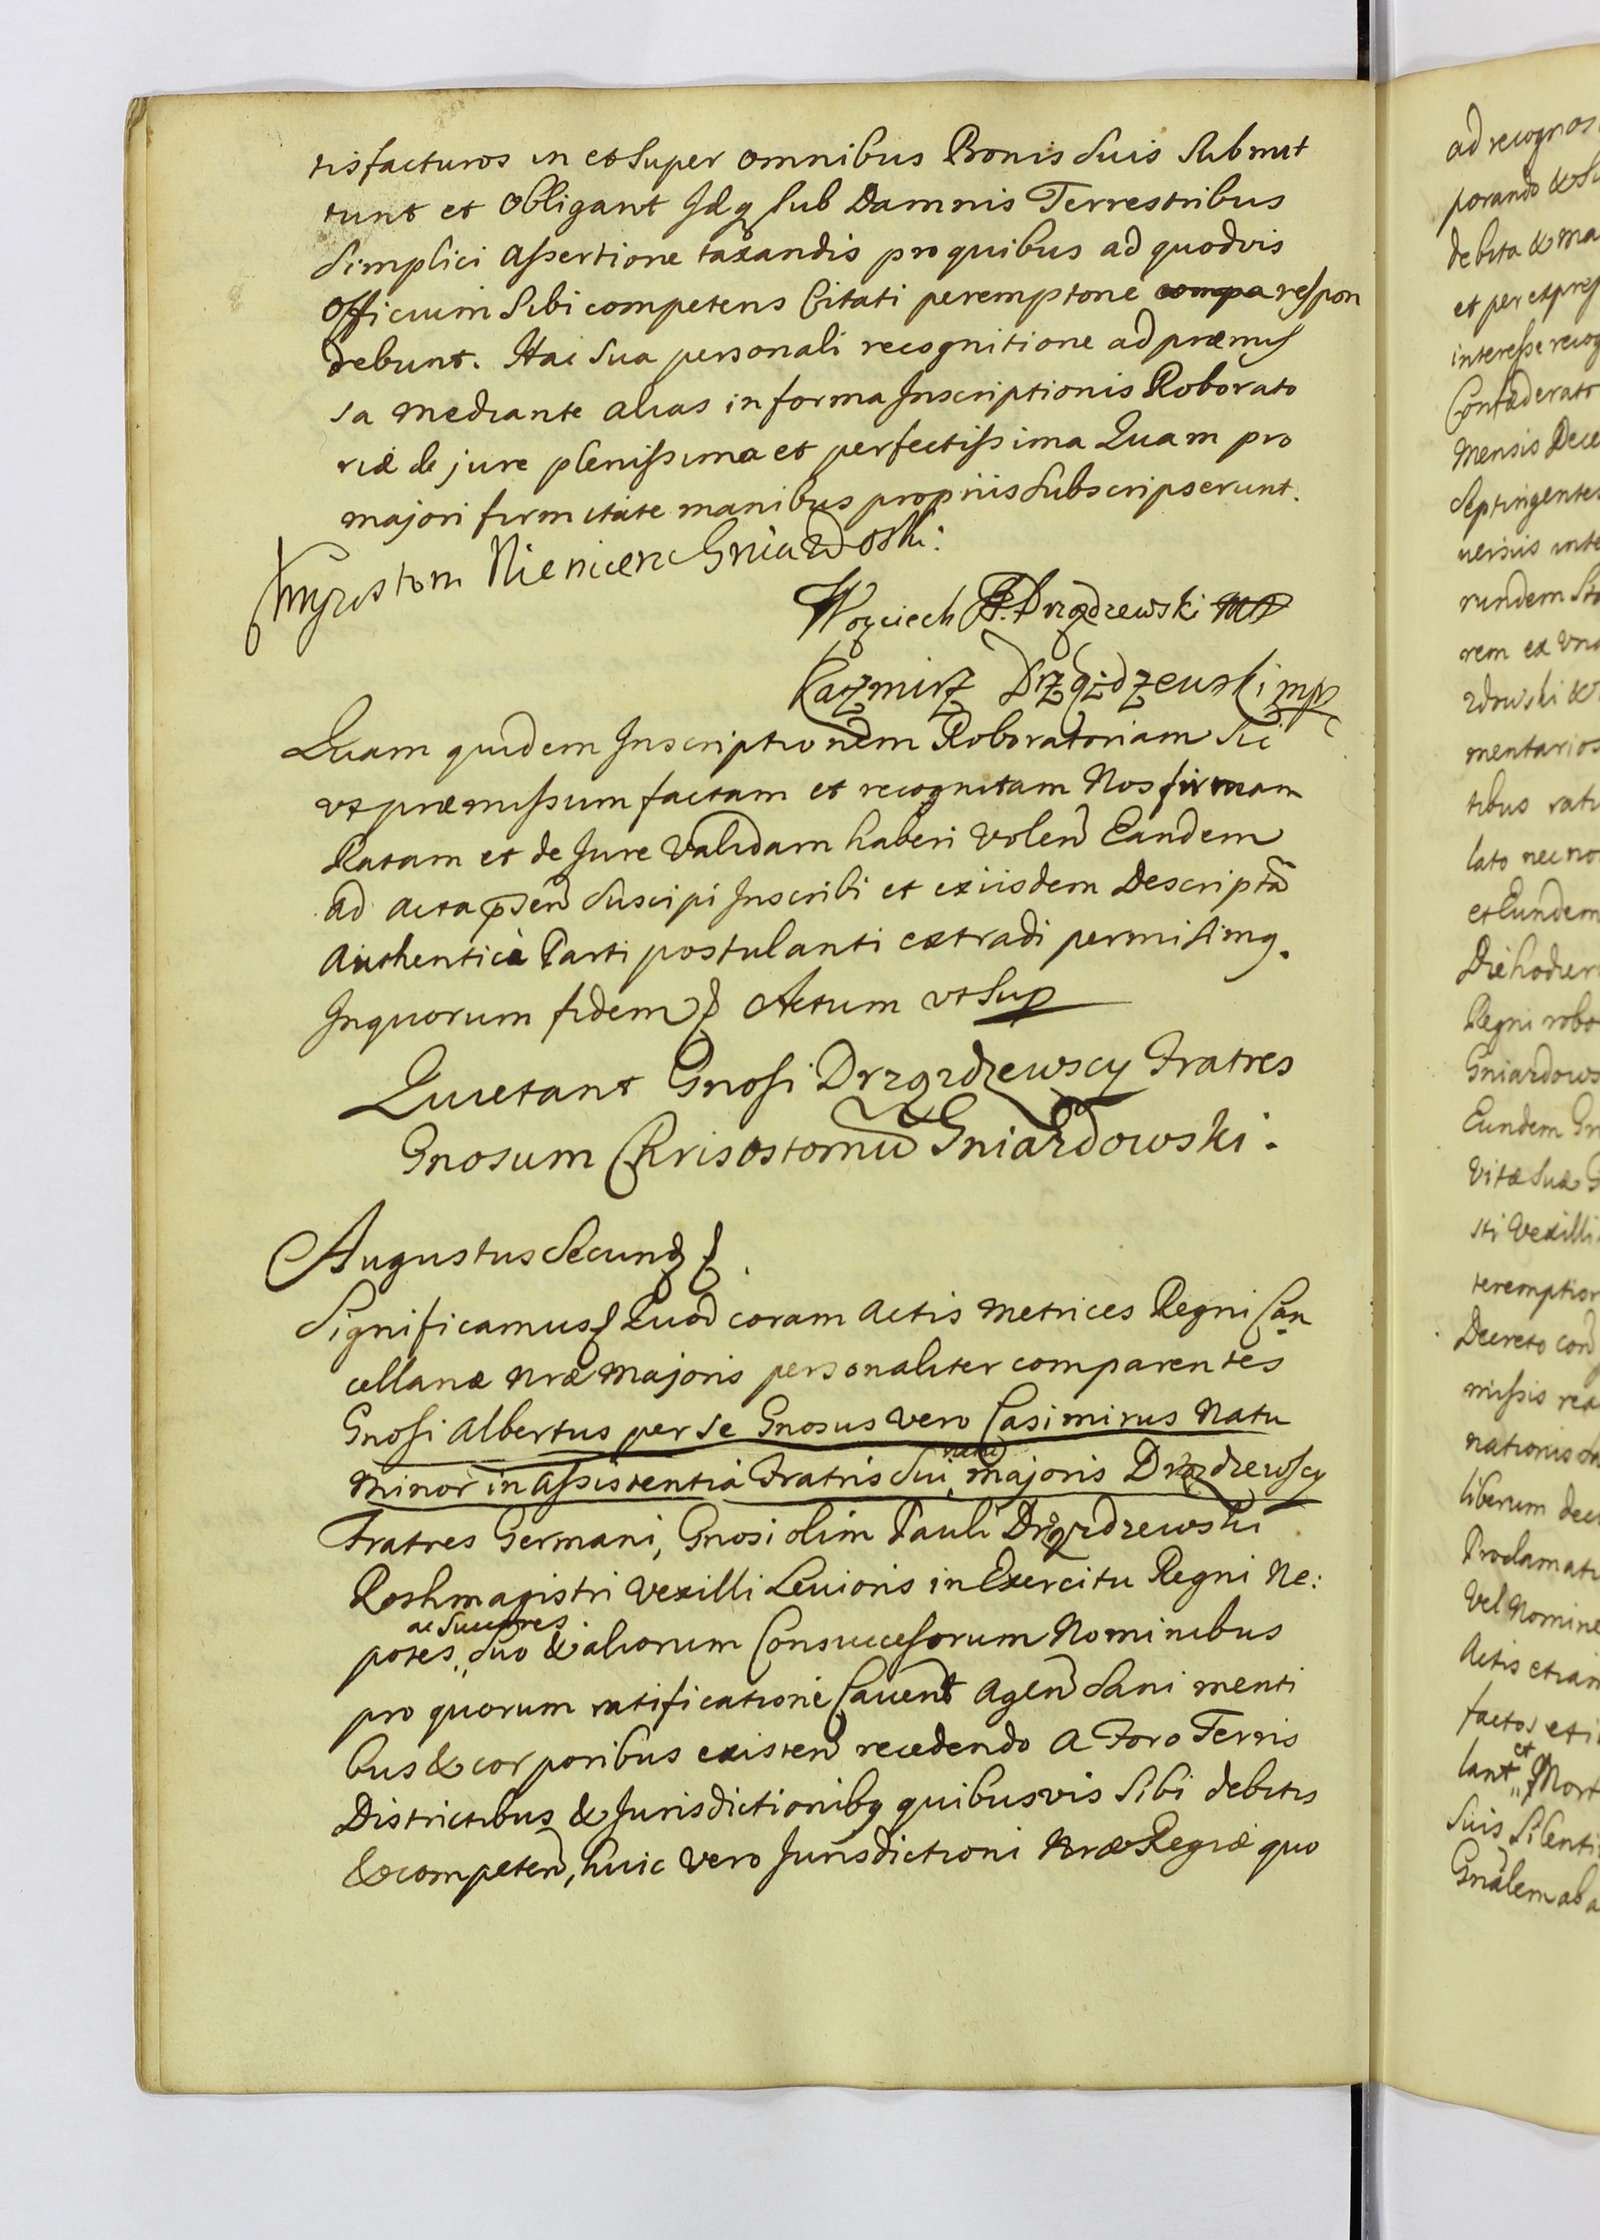 tisfacturos in et Super omnibus Bonis Suis Submit
tunt et Obligant Idq sub Damnis Terrestribus
Simplici Assertione taxandis pro quibus ad quodvis
Officium Sibi competens Citati peremptorie compa respon
debunt. Hac Sua personali recognitione ad præmis
sa mediante alias in forma Inscriptionis Roborato
riæ de jure plenissima et perfectissima Quam pro
majori firmitate manibus propriis Subscripserunt.
Gniazdoski:
Woyciech Drzązdzewski mp
Kazmirz Drzążdżewski mp
Quam quidem Inscriptionem Roboratoriam Sic
ut præmissum factam et recognitam Nos firmam
Ratam et de Jure Validam haberi Volen Eandem
ad acta pñsen Suscipi Inscribi et ex iisdem Descriptã
Authenticè Parti postulanti extradi permisimq.
In quorum fidem Actum ut Sup
Quietant Gnosi Drzązdzewscy Fratres
Gnosum Chrisostomũ Gniazdowski.
Augustus Secund
Significamus Quod coram Actis Metrices Regni Can
cellariæ Nræ Majoris personaliter comparentes
Gnosi Albertus per se Gnosus vero Casimirus Natu
Minor in Assistentia Fratris Sui natu majoris Drzązdzewscy
Fratres Germani, Gnosi olim Pauli Drzązdzewski
Rothmagistri Vexilli Levioris in Exercitu Regni Ne:
potes ac Succores Suo & aliorum Consuccessorum Nominibus
pro quorum ratificatione Cavent Agen Sani menti
bus & corporibus existen recedendo a Foro Terris
Districtibus & Jurisdictionibq quibusvis Sibi debitis
& competen, huic vero Jurisdictioni Nræ Regiæ quo
ad recognos
porando & Su
debita & ma
et per expres
interesse recog
Confæderatr
Mensis Dece
Septingentes
versus inte
rundem Sto
rem ex Vna
zdowski &
mentarios
tibus rati
lato nec no
et Eundem
Die hodier
Regni robo
Gniazdows
Eundem Gn
Vitæ Suæ G
sti Vexilli
teremptior
Decreto con
missis rea
nationis Sa
liberum dec
Proclamati
Vel Nomine
Actis etiam
factos et i
lant et Mort
Suis Silenti
Gnãlem ab a